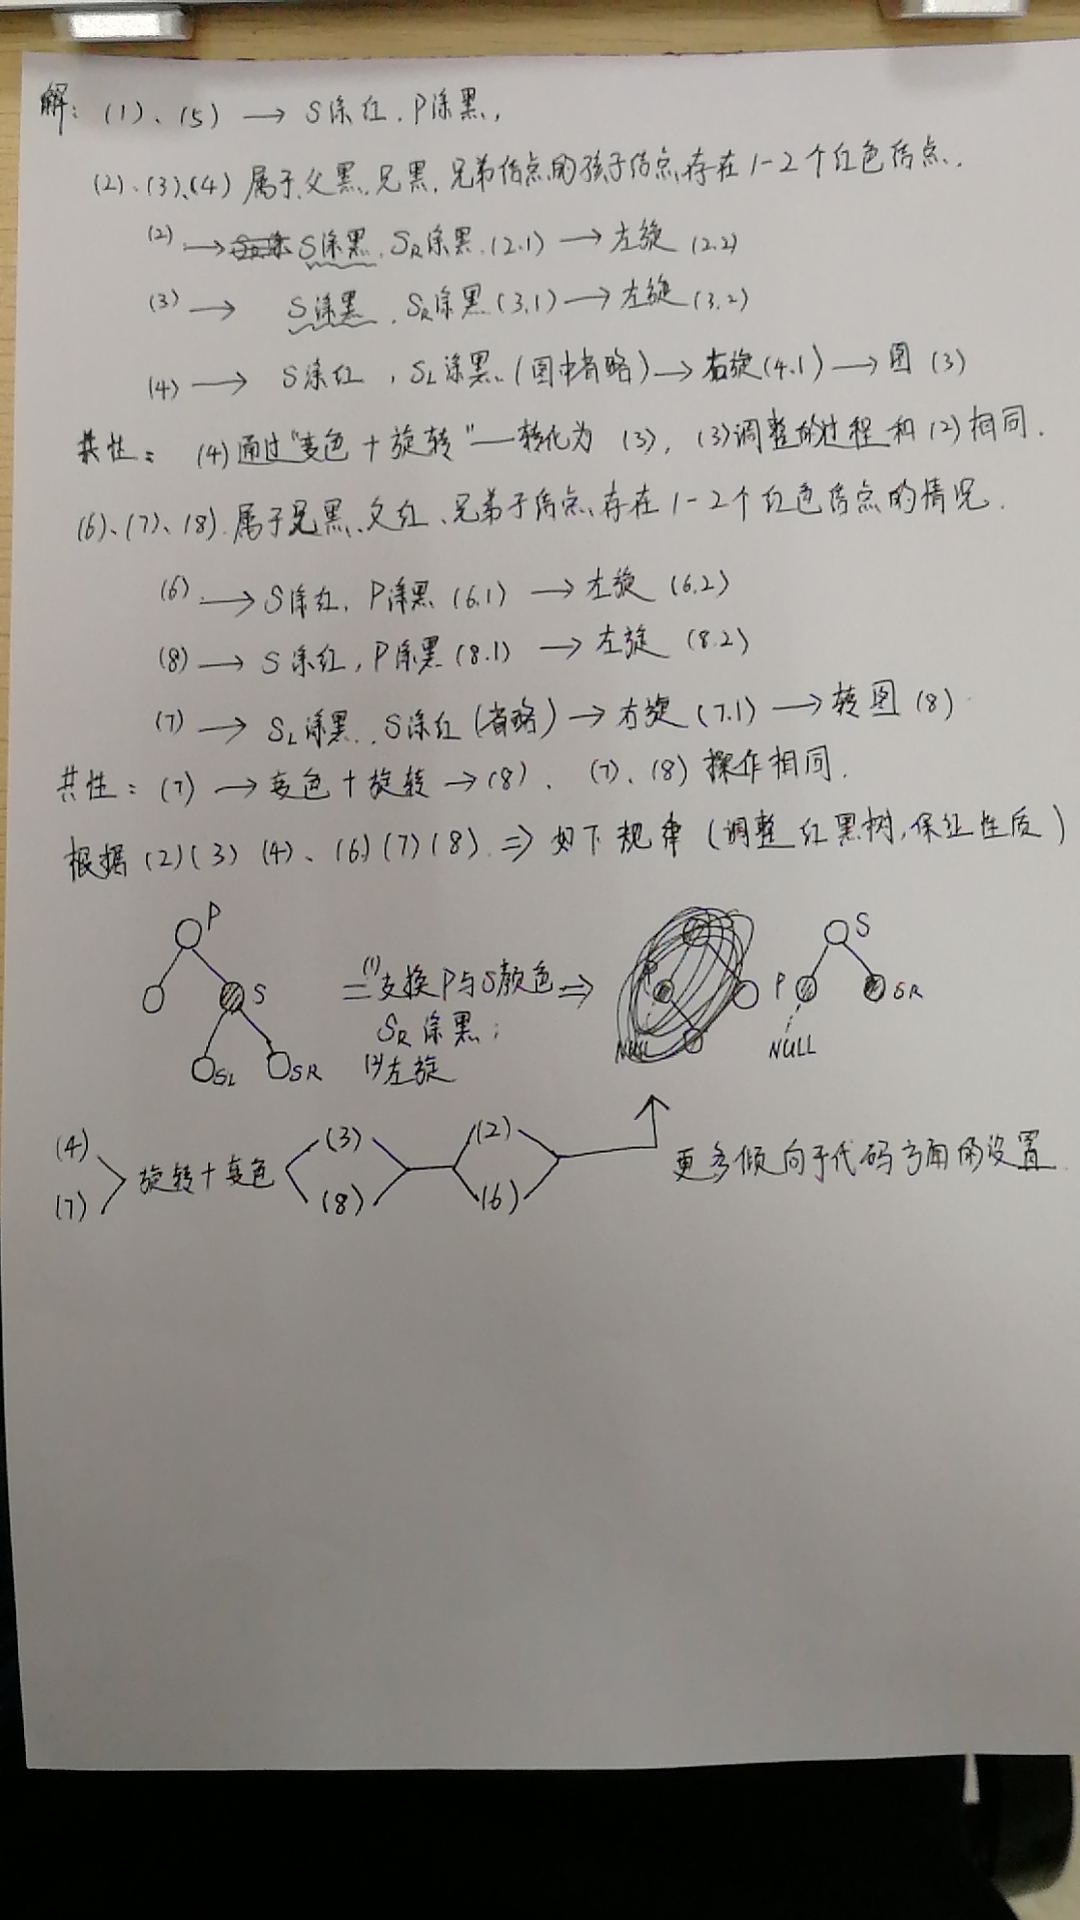 解: (1)、(5) → S涂红.P涂黑,
(2)、(3)、(4) 属于父黑.兄黑.兄弟结点的孩子结点存在1-2个红色结点.
(2) → S涂黑.SR涂黑.(2.1) → 左旋 (2.2)
(3) → S涂黑.SR涂黑(3.1) → 左旋 (3.2)
(4) → S涂红,SL涂黑(图中省略) → 右旋(4.1) → 图 (3)
共性: (4)通过"变色+旋转"—转化为 (3), (3)调整的过程和(2)相同.
(6)、(7)、(8).属于兄黑、父红、兄弟子结点、存在1-2个红色结点的情况.
(6) → S涂红, P涂黑 (6.1) → 左旋 (6.2)
(8) → S涂红,P涂黑(8.1) → 左旋 (8.2)
(7) → SL涂黑.S涂红(省略) → 右旋(7.1) → 转图 (8)
共性: (7) → 变色+旋转 → (8). (7)、(8)操作相同.
根据(2)(3)(4)、(6)(7)(8) ⇒ 如下规律(调整红黑树,保证性质)
P S
S =(1)交换P与S颜色⇒ P SR
SR涂黑; NULL
SL SR (2)左旋
(4) (3) (2)
旋转+变色 更多倾向于代码方面的设置
(7) (8) (6)